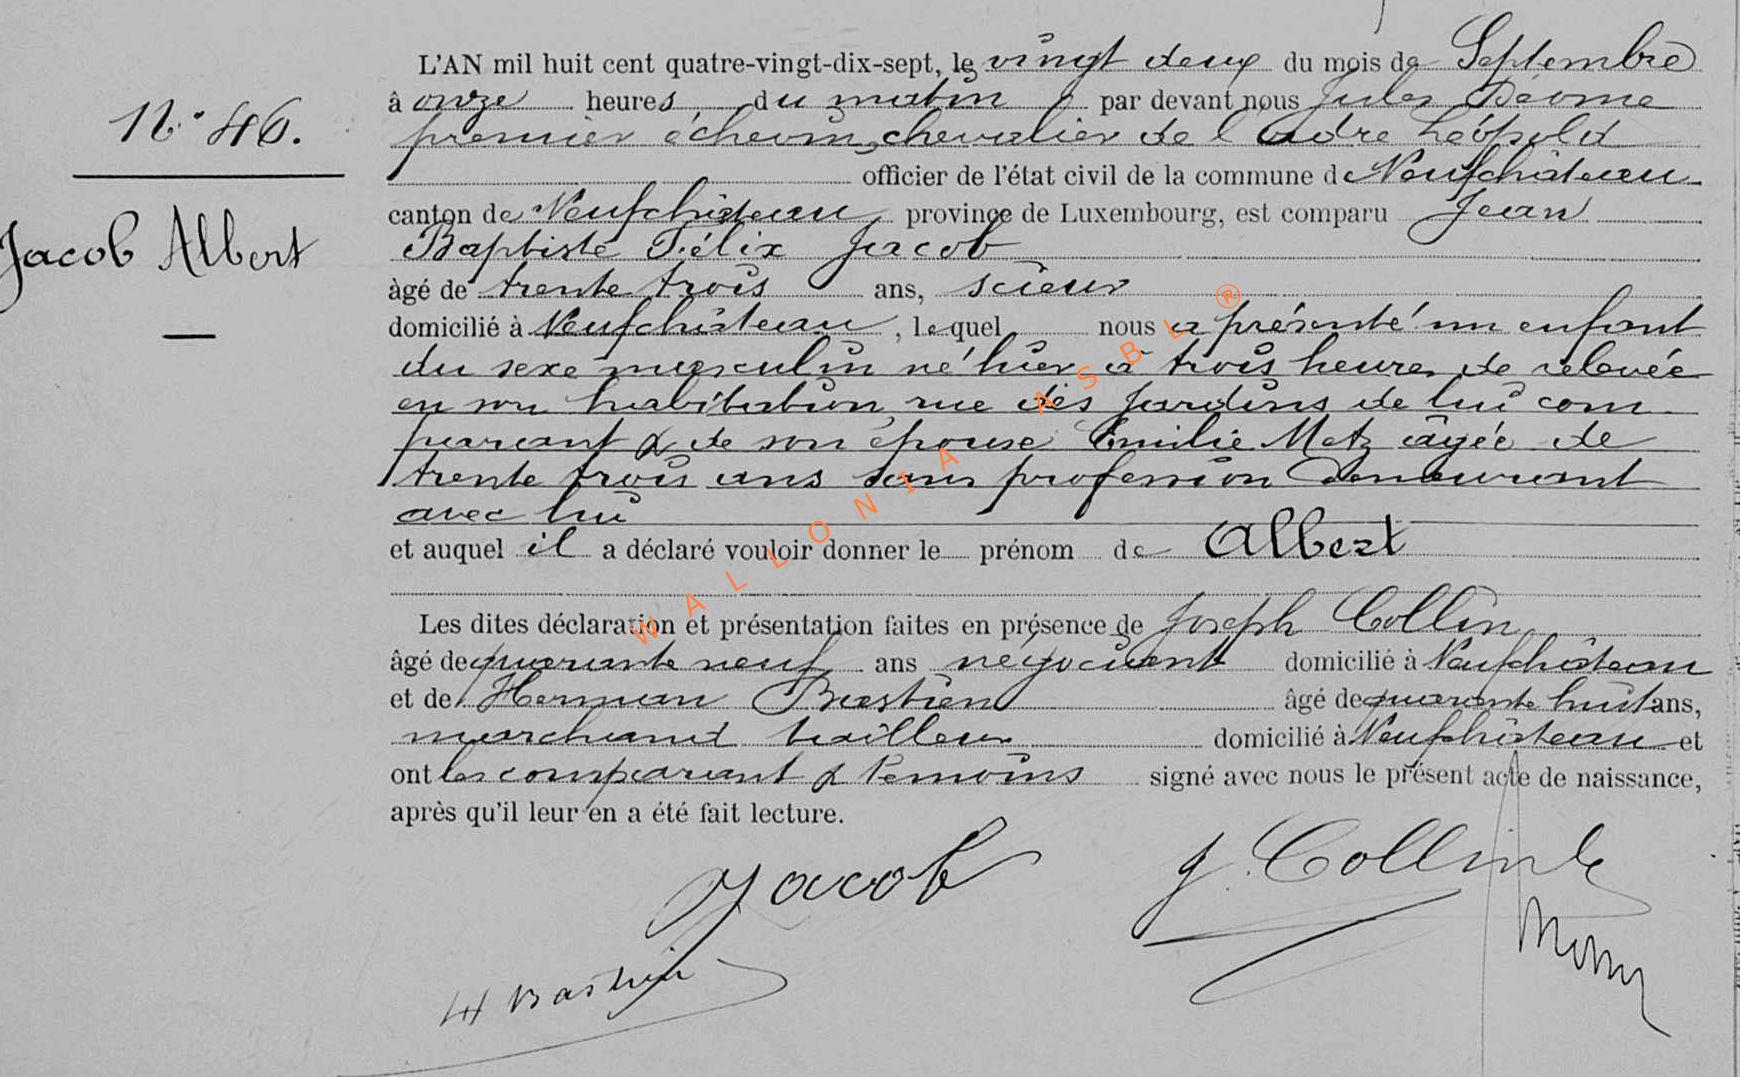 L'AN mil huit cent quatre-vingt-dix-sept, le vingt deux du mois de Septembre
N° 46.
à onze heures du matin par devant nous Jules
premier échevin, chevalier de l'Ordre Léopold
officier de l'état civil de la commune de Neufchâteau
Jacob Albert
canton de Neufchâteau, province de Luxembourg, est comparu Jean
Baptiste Félix Jacob
âgé de trente trois ans, scieur
domicilié à Neufchâteau, lequel nous a présenté un enfant
du sexe masculin né hier à trois heures de relevée
en son habitation, rue des Jardins de lui com
parant & de son épouse Emilie Metz âgée de
trente trois ans sans profession demeurant
avec lui
et auquel il a déclaré vouloir donner le prénom de Albert
Les dites déclaration et présentation faites en présence de Joseph Collin
âgé de quarante neuf ans négociant domicilié à Neufchâteau
et de Herman Bastien âgé de quarante huit ans,
marchand tailleur domicilié à Neufchâteau et
ont les comparant & témoins signé avec nous le présent acte de naissance,
après qu'il leur en a été fait lecture.
Jacob
J. Collin
H Bastien
WALLONIA ASBL ®